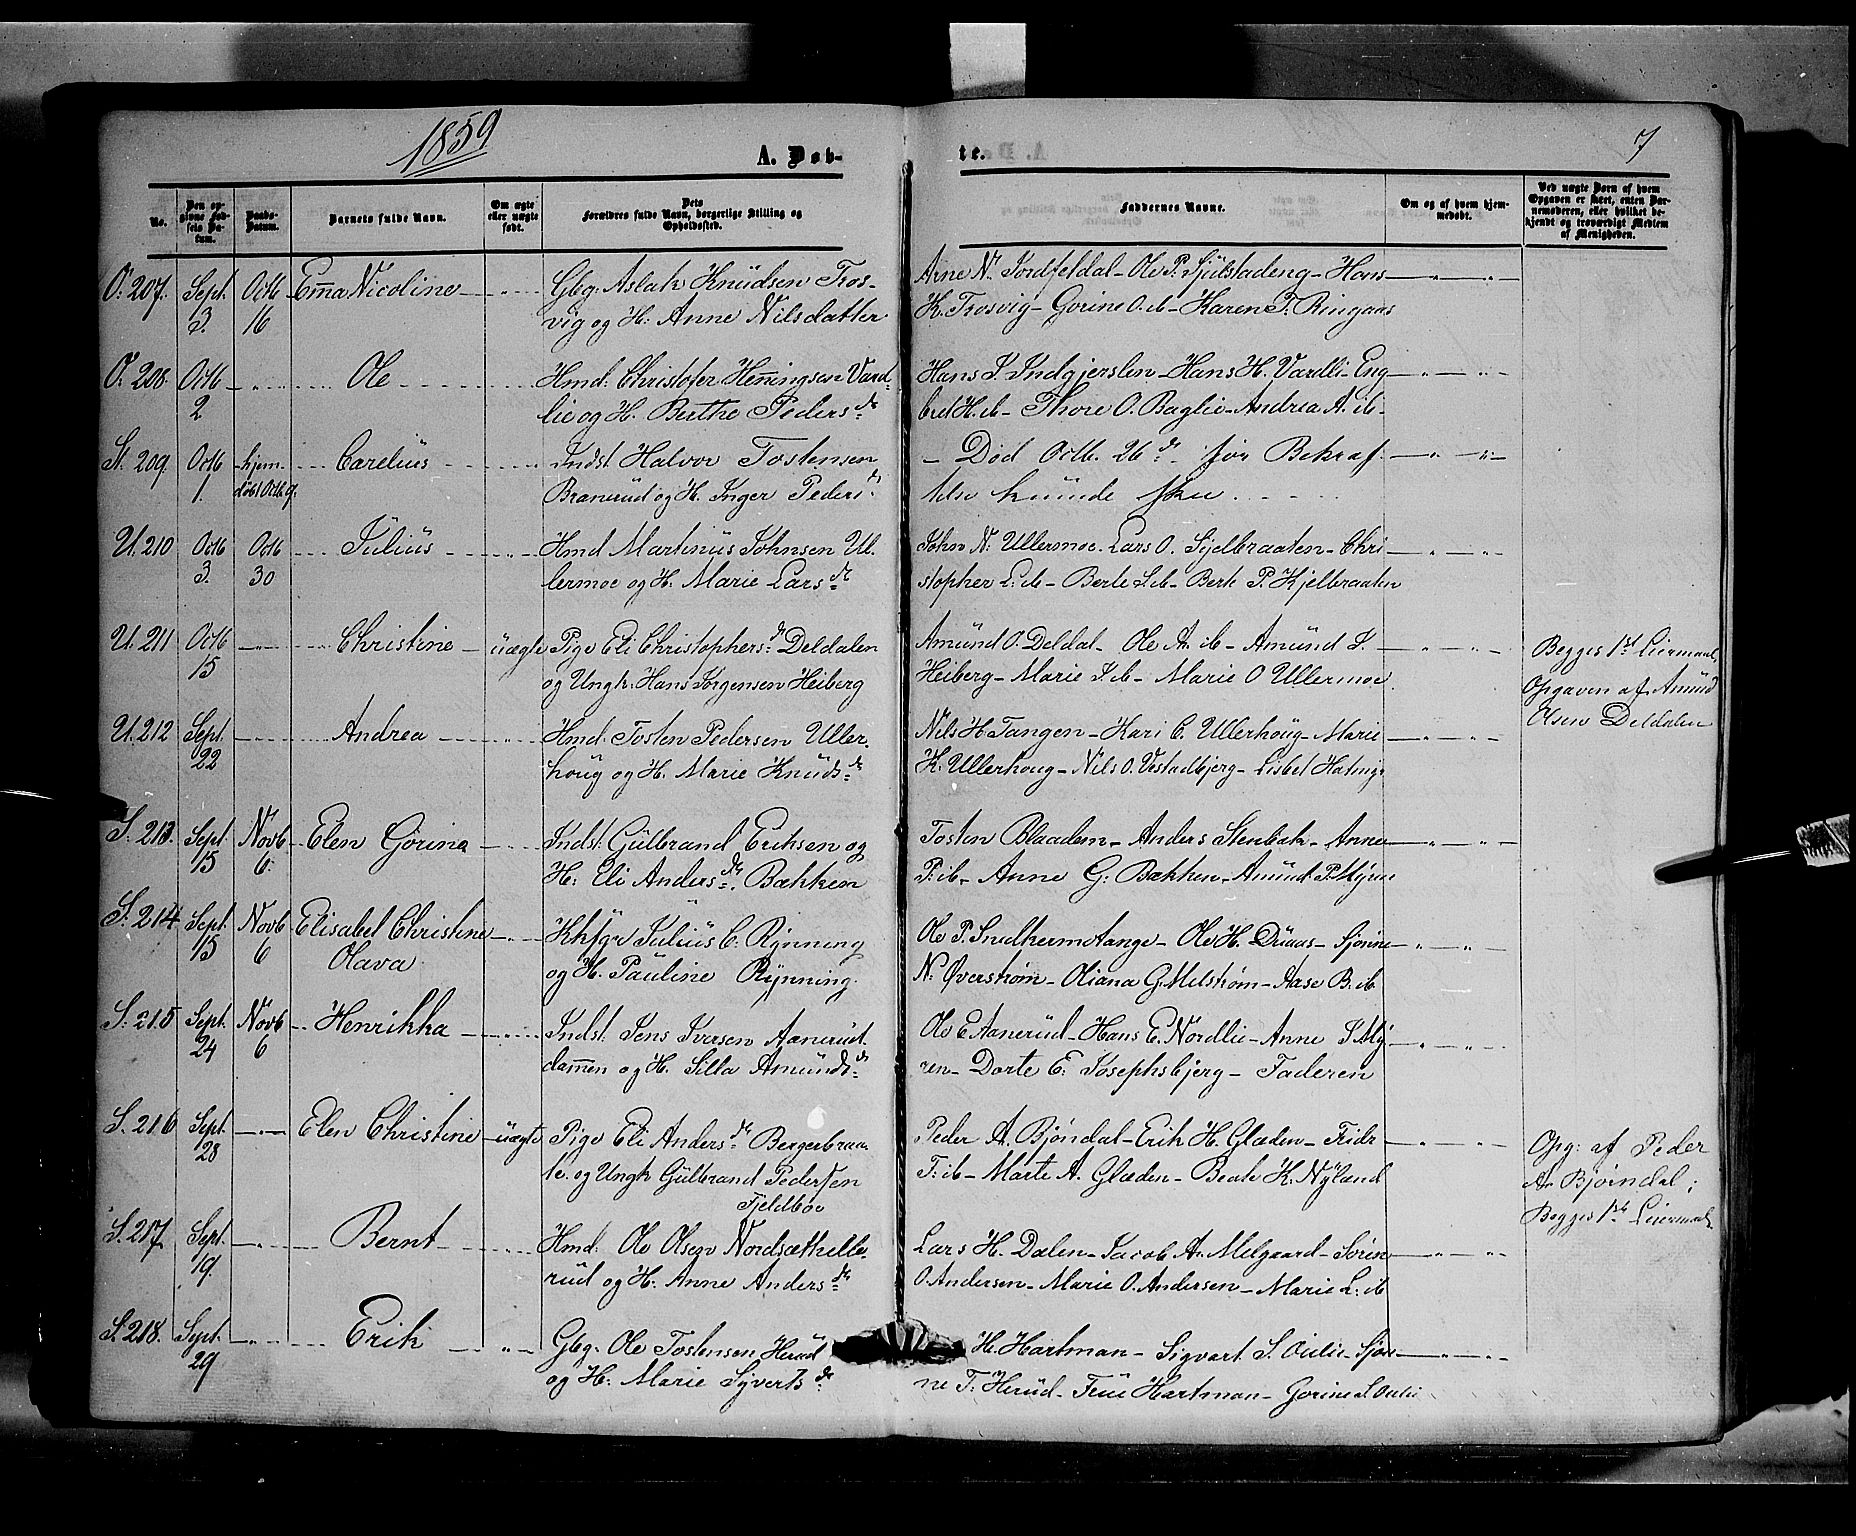 1859
A. Døb-
te.
7
No.
Den opgivne Fødsels Datum.
Daabs-Datum.
Barnets fulde Navn.
Om ægte eller uægte født.
Dets Forældres fulde Navn, borgerlige Stilling og Opholdssted.
Faddernes Navne.
Om og af hvem hjemmedøbt.
Ved uægte Børn af hvem Opgaven er skeet, enten Barnemoderen, eller hvilket bekjendt og troværdigt Medlem af Menigheden.
Ö: 207. Sept. 3. Octb 16 Emma Nicoline Gbg: Aslak Knudsen Tros- Arne N. Ole P. Hans
vig og H: Anne Nilsdatter K. Trosvig - Gorine O. ib - Karen T. Ringaas
Ö: 208. Octb 2 Ole Hmd: Christofer Henningsen Vard- Hans Hans H. Vardli - Eng
lie og H. Berthe Peders dr bret H. ib - Thore O. Baglie - Andrea A. ib -
St. 209. Octb 1. hjem- døbt Octb 9. Carelius Indst. Halvor Tostensen - Död Octb. 26de för Bekræf-
Branerud og H. Inger Peders dr telse kunde ske.
U. 210 Octb 3. Octb 30 Julius Hmd Martinus Johnsen Ul- John N: Ullermoe - Lars O. Chri
lermoe og H. Marie Lars dr stopher L: ib - Berte ib - Berte P. Kjelbraaten
U. 211 Octb 15 Christine uægte Pige Eli Christophers dr Deldalen Amund O. Deldal - Ole A. ib - Amund J. Begges 1ste Leiermaal,
og Ungk: Hans Jørgensen Heiberg Heiberg - Marie J. ib - Marie O Ullermoe Opgaven af Amund
Olsen Deldalen
U. 212 Sept. 22 Andrea Hmd: Tosten Pedersen Uller- Nils H Tangen - Kari C. Ullerhoug - Marie
houg og H. Marie Knuds dr K. Ullerhoug - Nils O. Vestadbjerg - Lisbet
S. 213. Sept. 15 Novb 6. Elen Gorine Indst: Gulbrand Eriksen og Tosten Blaadem - Anders Stenbæk - Anne
H: Eli Anders dr. Bækken P. ib - Anne G: Bækken - Amund P. Myren
S. 214 Sept. 15 Novb 6 Elisabet Christine Julius C. Rynning Ole P. - Ole H. - Sjønne
Olava og H. Pauline Rynning. N. Øverstrøm - Oliana G. Melstrøm - Aase B. ib
S. 215 Sept. 24 Novb 6 Henrikka Indst: Jens Iversen Aanerud- Ole E Aanerud - Hans E. Nordlie - Anne J My
dammen og H. Silla Amunds dr ren - Dorte E. Josephsbjerg - Faderen
S. 216 Sept. 28 Elen Christine uægte Pige Eli Anders dr Bergerbraa- Peder A. Bjøndal - Erik H. Glæden - Opg: af Peder
te og Ungk Gulbrand Pedersen T. ib - Marte A. Glæden - Beate K. Nyland A. Bjørndal;
Fjeldboe Begges 1ste Leiermaal
S. 217. Sept. 19. Bernt Hmd: Ole Olsen Nordsæthelle- Lars H. Dalen - Jacob A. Melgaard - Søren
rud og H: Anne Anders dr O. Andersen - Marie O. Andersen - Marie L: ib
S. 218. Sept. 29 Erik Gbg: Ole Tostensen Herud H. Hartman - Sigvart S. Oulie - Sjøn-
og H: Marie Syverts dr ne T. Herud - Hartman - Gorine S. Oulie